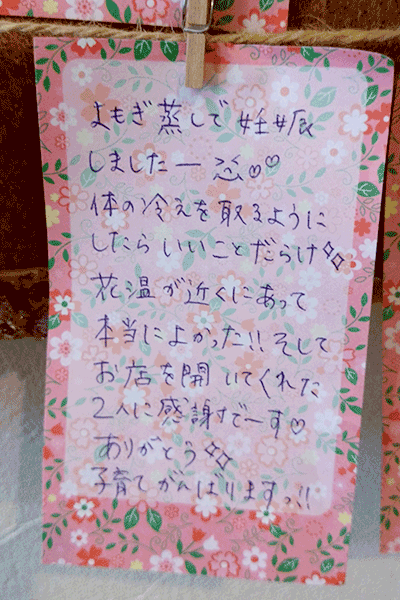 よもぎ蒸しで 妊娠
しましたー ♡♡
体の冷えを取るように
したら いいことだらけ✨
花温が近くにあって
本当によかった!! そして
お店を開いてくれた
2人に感謝でーす♡
ありがとう✨
子育てがんばりますっ!!